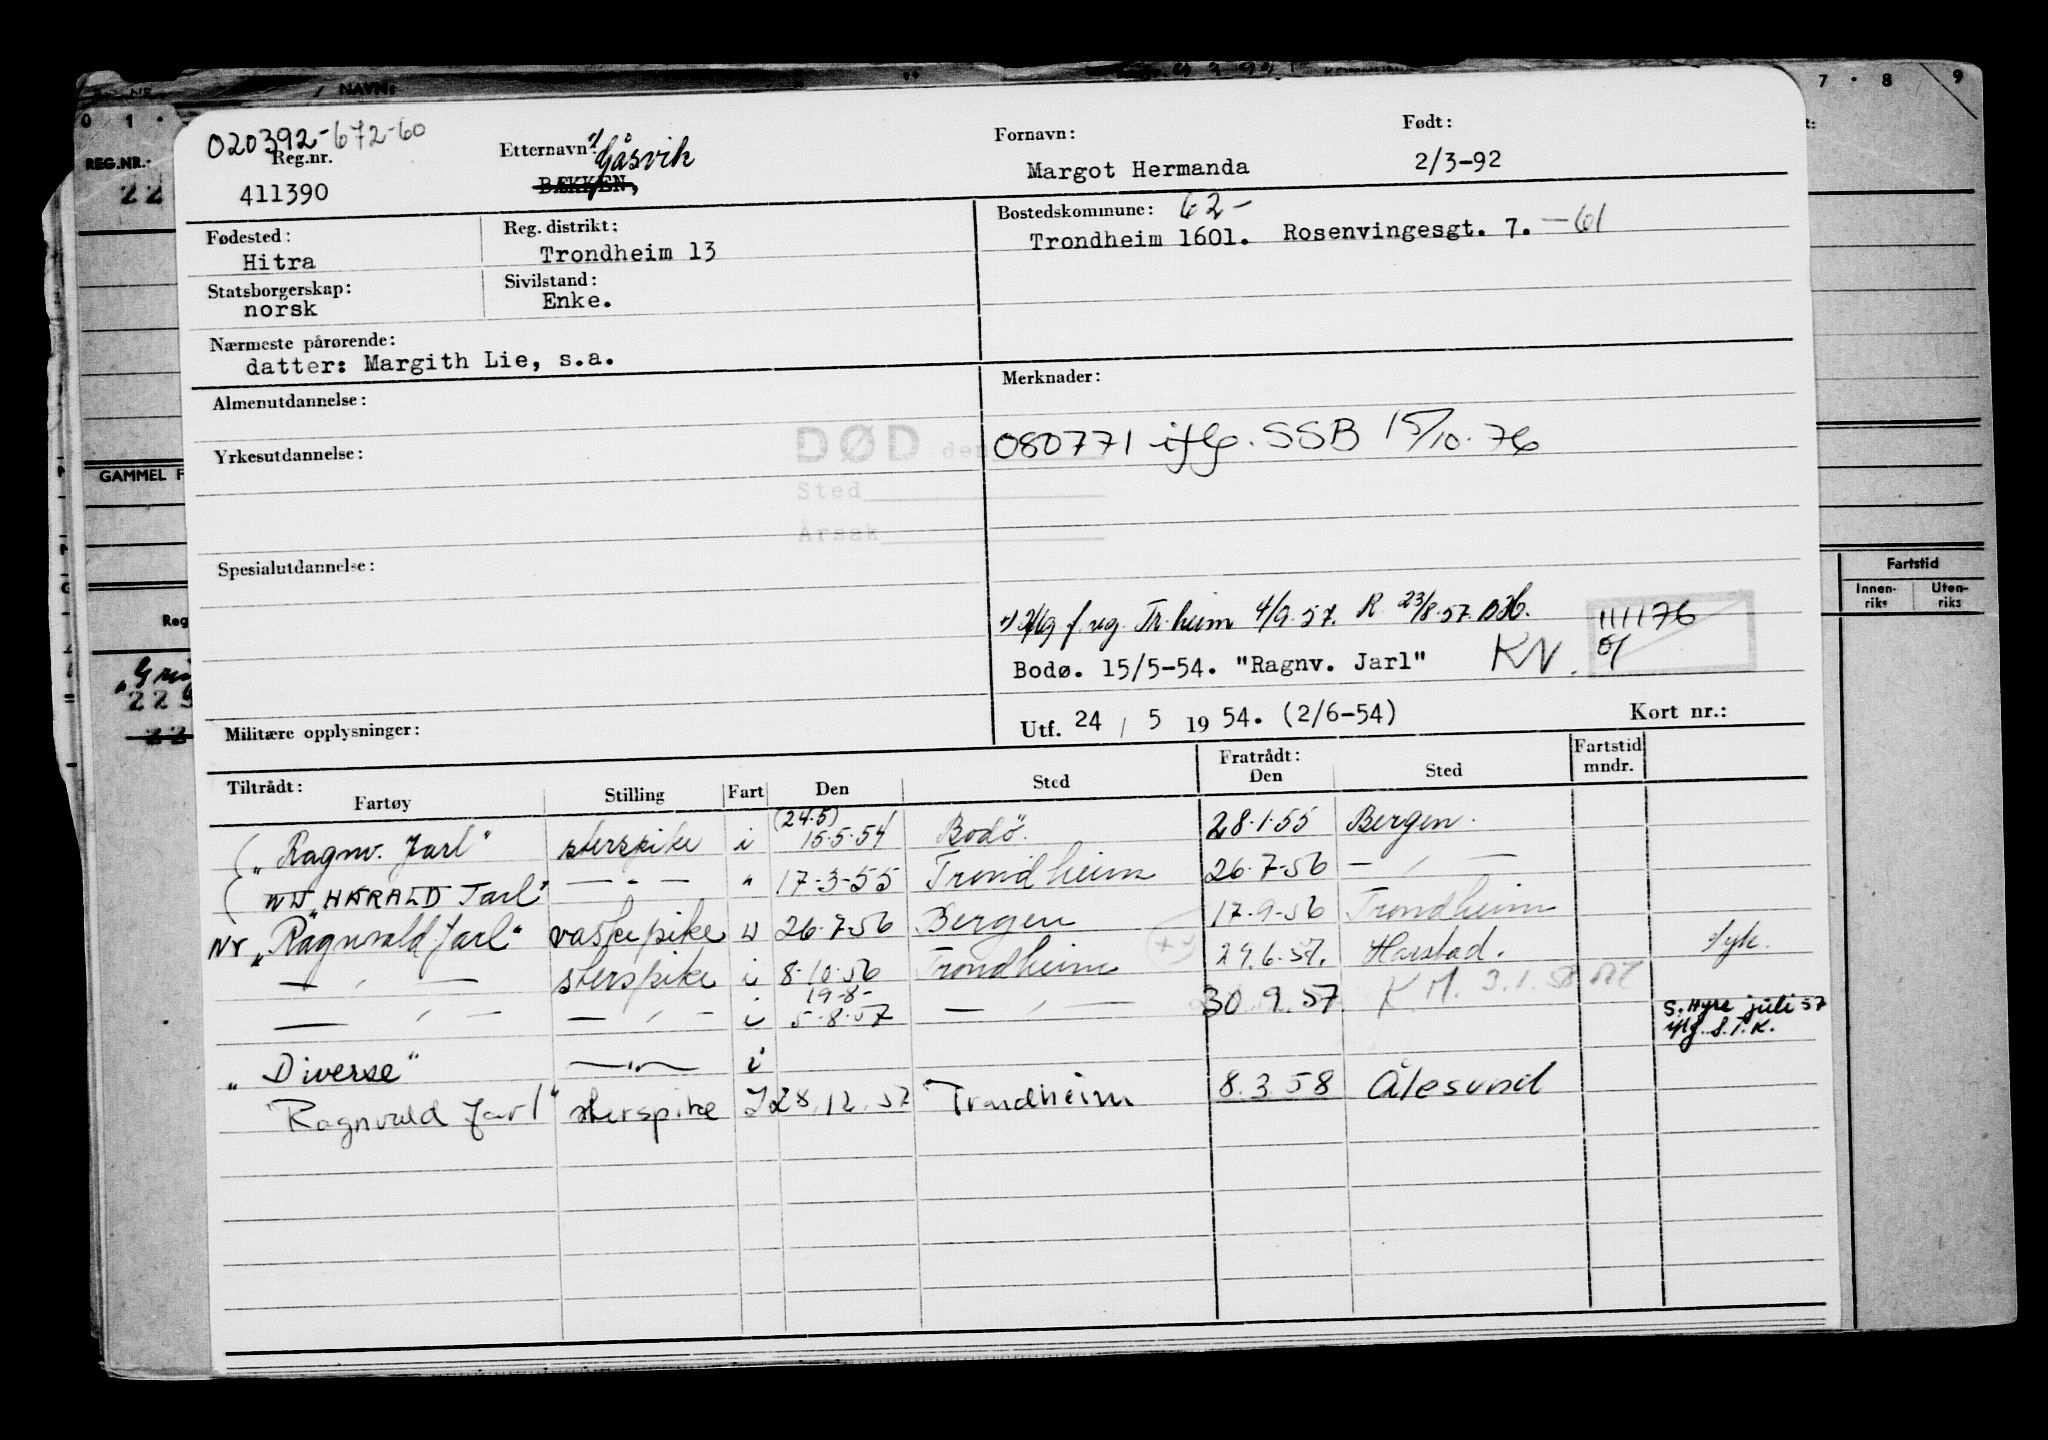 NR. NAVN: 7 · 8 9
0 1 ·
REG.NR.:
22
020392-672-60
Reg.nr. Etternavn: Gåsvik Fornavn: Født:
411390 BÆKKEN, Margot Hermanda 2/3-92
Fødested: Reg. distrikt: Bostedskommune: 62-
Hitra Trondheim 13 Trondheim 1601. Rosenvingesgt. 7. -61
Statsborgerskap: Sivilstand:
norsk Enke.
Nærmeste pårørende:
datter: Margith Lie, s.a.
Almenutdannelse: Merknader:
DØD den 080771 iflg. SSB 15/10-76
Yrkesutdannelse:
Sted
Årsak
GAMMEL F
Spesialutdannelse:
Fartstid
Innen-riks Uten-riks
Reg
f. reg. Tr.heim 4/9.57. R 23/8.57.
111176
Bodø. 15/5-54. "Ragnv. Jarl" KN.
Militære opplysninger: Utf. 24 / 5 19 54. (2/6-54) Kort nr.:
Tiltrådt: Fratrådt: Fartstid mndr.
Fartøy Stilling Fart Den Sted Den Sted
(24.5)
"Ragnv. Jarl" sterspike i 15.5.54 Bodø. 28.1.55 Bergen.
"HARALD Jarl" — " — " 17-3-55 Trondheim 26.7-56 — " —
NY "Ragnvald Jarl" vaskepike 26.7-56 Bergen 17.9-56 Trondheim
— " — sterspike i 8.10.56 Trondheim 29.6.57. Harstad. syk.
19-8-
— " — — " — i 5.8.57 — " — 30.9.57. K M. 3.1.58
S. Hyre juli 57
iflg. S.T.K.
"Diverse" — " — i
"Ragnvald Jarl" sterspike I 28.12.57 Trondheim 8.3.58 Ålesund